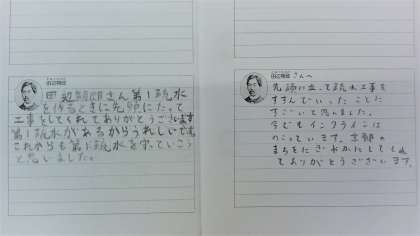 田辺朔郎さん第1疏水
を作るときに先頭にたって
工事をしてくれてありがとうございます
第1疏水があるからうれしいです。
これからも第1疏水を守っていこう
と思いました。
田辺朔郎さんへ
先頭に立って疏水工事を
すすんでいったことに
すごいと思いました。
今でもインクラインは
のこっています。京都の
まちをにぎやかにしてくれ
てありがとうございます。